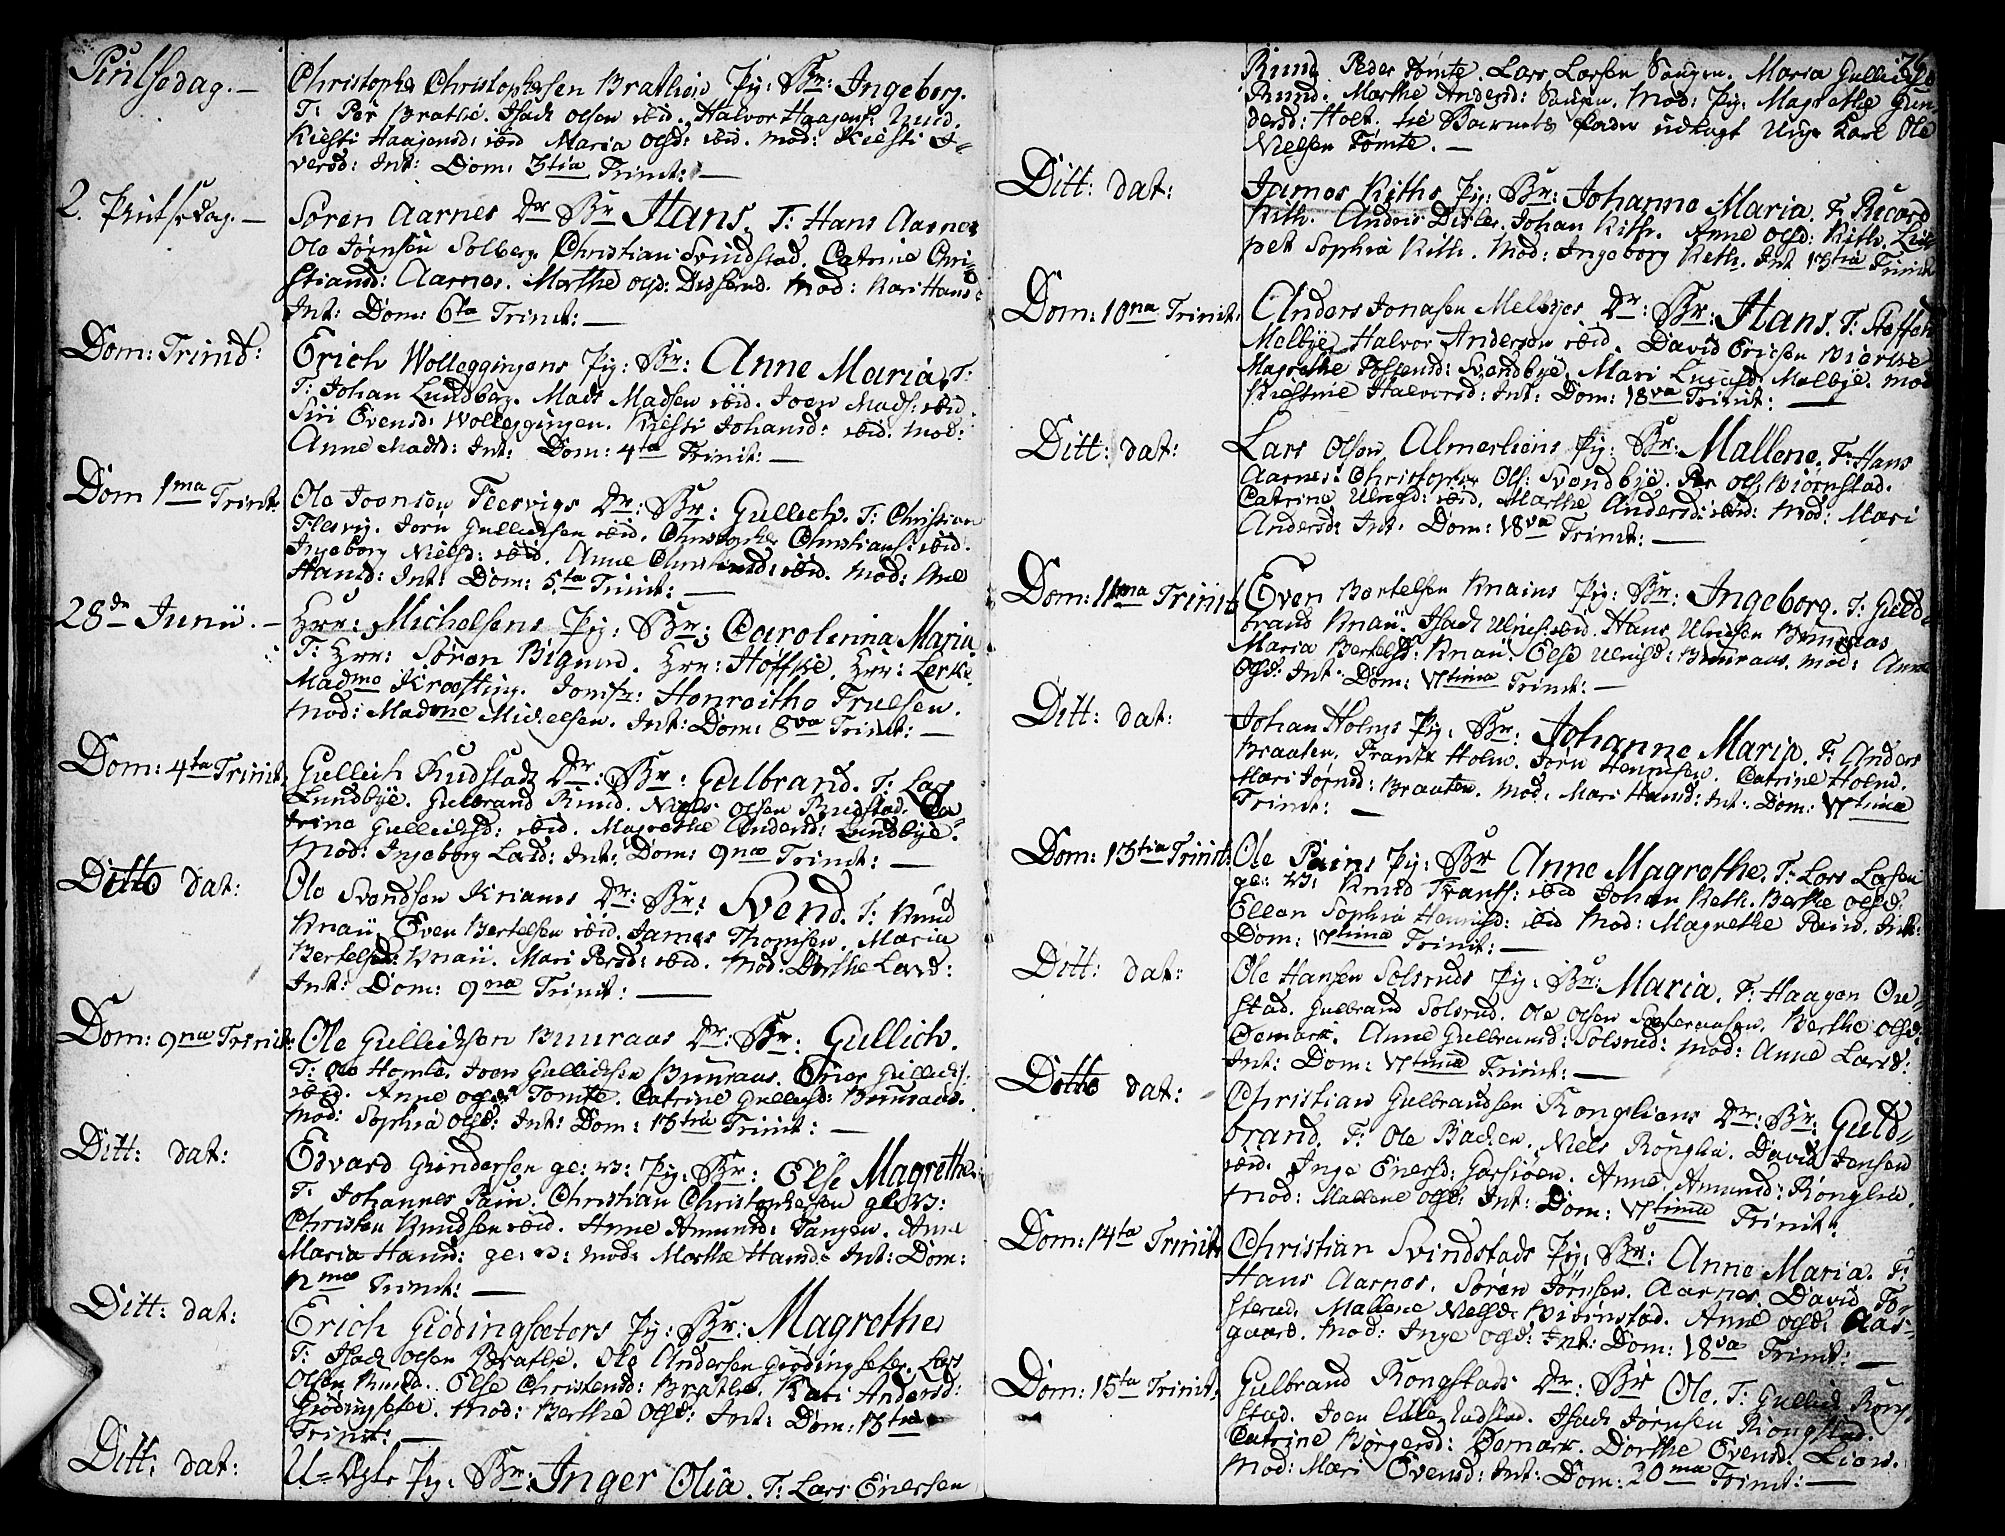 Pintsedag. —
Christopher Christophersen Brathis Pg: Br: Ingeborg.
T: Per Brathe. Isach Olsen ibid. Halvor Haagens: Ruud.
Kiesti Haagensd: ibid Maria Olsd: ibid. Mod: Kiesti I-
versd: Int: Dom: 3tia Trinit: —
2. Pintsedag. —
Søren Aarnes Dr: Br: Hans. T: Hans Aarnes
Ole Jørnsen Solberg. Christian Svindstad. Catrine Chri-
stiansd: Aarnes. Marthe Olsd: Mod: Kari Hans:
Int: Dom: 6ta Trinit: —
Dom: Trinit:
Erich Wolleggingens Pg: Br: Anne Maria. T:
T: Johan Lundberg. Mads Madsen ibid. Joen Mads: ibid.
Siri Evensd: Wolleggingen. Kiesti Johansd: ibid. Mod:
Anne Madsd: Int: Dom: 4ta Trinit: —
Dom 1ma Trinit:
Ole Joensen Teervigs Dr: Br: Gullich. T: Christian
Jørn Gullichsen ibid. Christopher Christians: ibid.
Ingeborg Nielsd: ibid. Anne Christiansd: ibid. Mod: Anne
Hansd: Int: Dom: 5ta Trinit: —
28de Junii. —
Hrr: Michelsens Pg: Br: Carolinna Maria.
T: Hrr: Søren Bigum. Hrr: Høffke. Hrr: Lerke.
Madme Kroosting. Jomfr: Henraitha Truelsen.
Mod: Madme Michelsen. Int: Dom: 8va Trinit: —
Dom: 4ta Trinit:
Gullich Rudstads Dr: Br: Gulbrand. T: Lars
Lundbye. Gulbrand Ruud. Niels Olsen Rudstad. Ca-
trine Gullichsd: ibid. Magrethe Andersd: Lundbye.
Mod: Ingeborg Larsd: Int: Dom: 9næ Trinit: —
Ditto dat:
Ole Svendsen Knaus Dr: Br: Svend. T: Knud
Knau. Even Bertelsen ibid. James Thomsen. Maria
Bertelsd: Knau. Mari Persd: ibid. Mod: Dorthe Larsd:
Int: Dom: 9næ Trinit: —
Dom: 9næ Trinit:
Ole Gullichsen Buuraas Dr: Br: Gullich.
T: Ole Homle. Joen Gullichsen Buuraas. Gullichs:
ibid. Anne Olsdr Tomte. Catrine Gullichsd: Buuraas.
Mod: Sophia Olsd: Int: Dom: 13tia Trinit: —
Ditt: dat:
Edvard Gundersen ge: W: Pg: Br: Else Magrethe.
T: Johannes Pain. Christian Christophersen ge: W:
Christen Knudsen ibid. Anne Amunds: Tangen. Anne
Maria Hansd: ge: W: Mod: Marthe Hansd: Int: Dom:
12mæ Trinit: —
Ditt: dat:
Erich Giødingsæters Pg: Br: Magrethe
T: Isach Olsen Brathe. Ole Andersen Giødingseter. Lars
Olsen Ruud. Else Christensd: Brathe. Kari Andersd:
Giødingseter. Mod: Berthe Olsd: Int: Dom: 13tia
Trinit: —
Ditt: dat:
Pg: Br: Inger Olia. T: Lars Enersen
26
Ruud. Peder Tomte. Lars Larsen Haugen. Maria Gullichsd:
Ruud. Marthe Andersd: Haugen. Mod: Pg: Magrethe Gun-
dersd: Holt. til Barnets Fader udlagt Unge Karl Ole
Nielsen Tomte. —
Ditt: dat:
James Kiths Pg: Br: Johanne Maria. T: Ricard
Kith. Anders Johan Kith. Anne Olsd: Kith. Lis-
pet Sophia Kith. Mod: Ingeborg Keth. Int 13tia Trinit
Dom: 10na Trinit:
Anders Jonasen Melbyes Dr: Br: Hans. T: Steffen
Melbye. Halvor Andersen ibid. David Ericsen Bierke
Magrethe Svendbye. Mari Melbye. Mod
Kiestine Halvorsd: Int: Dom: 18va Trinit: —
Ditt: dat:
Lars Olsen Almerliens Pg: Br: Mallene. T: Hans
Aarnes. Christopher Ols: Svendbye. Per Ols: Biørnstad.
Catrine ibid. Marthe Andersd: ibid. Mod: Mari
Andersd: Int: Dom: 18va Trinit: —
Dom: 11ma Trinit:
Even Bertelsen Knaus Pg: Br: Ingeborg. T: Guld-
brand Knau. Isach Ulrics: ibid. Hans Ulricsen Buuraas
Maria Bertelsd: Knau. Else Ulricsd: Buuraas. Mod: Anne
Olsd: Int: Dom: 17tima Trinit: —
Ditt: dat:
Johan Holms Pg: Br: Johanne Maria. T: Anders
Braaten. Frantz Holm. Jørn Henrichsen. Catrine Holm.
Mari Jørnsd: Braaten. Mod: Mari Hansd: Int: Dom: 17tima
Trinit: —
Dom: 13tia Trinit:
Ole Pains Pg: Br Anne Magrethe. T: Lars Larsen
ge: W: Knud Frants: ibid Johan Keth. Berthe Olsd:
Ellen Sophia Henrichsd: ibid Mod: Magrethe Pain. Int:
Dom: 17tima Trinit: —
Ditt: dat:
Ole Hansen Solsruds Pg: Br: Maria. T: Haagen Ou-
stad. Gulbrand Solsrud. Ole Olsen Berthe Olsd:
Demark. Anne Gulbrandsd: Solsrud: Mod: Anne Larsd:
Int: Dom: 17tima Trinit: —
Ditto dat:
Christian Gulbrandsen Ronglians Dr: Br: Guld-
brand. T: Ole Bachen. Niels Ronglia. David Jensen
ibid. Inge Enersd: Garsiøen. Anne Amunsd: Ronglia.
Mod: Mallene Olsd: Int: Dom: 17tima Trinit:
Dom: 14ta Trinit:
Christian Svindstads Pg: Br: Anne Maria. T:
Hans Aarnes. Søren Jørnsen. Aarnes. David To-
sterud. Mallene Nielsd: Biørnstad. Anne Olsd: Aas-
gaard. Mod: Inge Olsd: Int: Dom: 18va Trinit: —
Dom: 15ta Trinit:
Gulbrand Rongstads Dr: Br Ole. T: Gullich Rong-
stad. Joen Lille Rudstad. Isach Jørnsen Rongstad.
Catrine Børgersd: Demark. Dorthe Evensd: Lian.
Mod: Mari Evensd: Int: Dom: 20ma Trinit: —